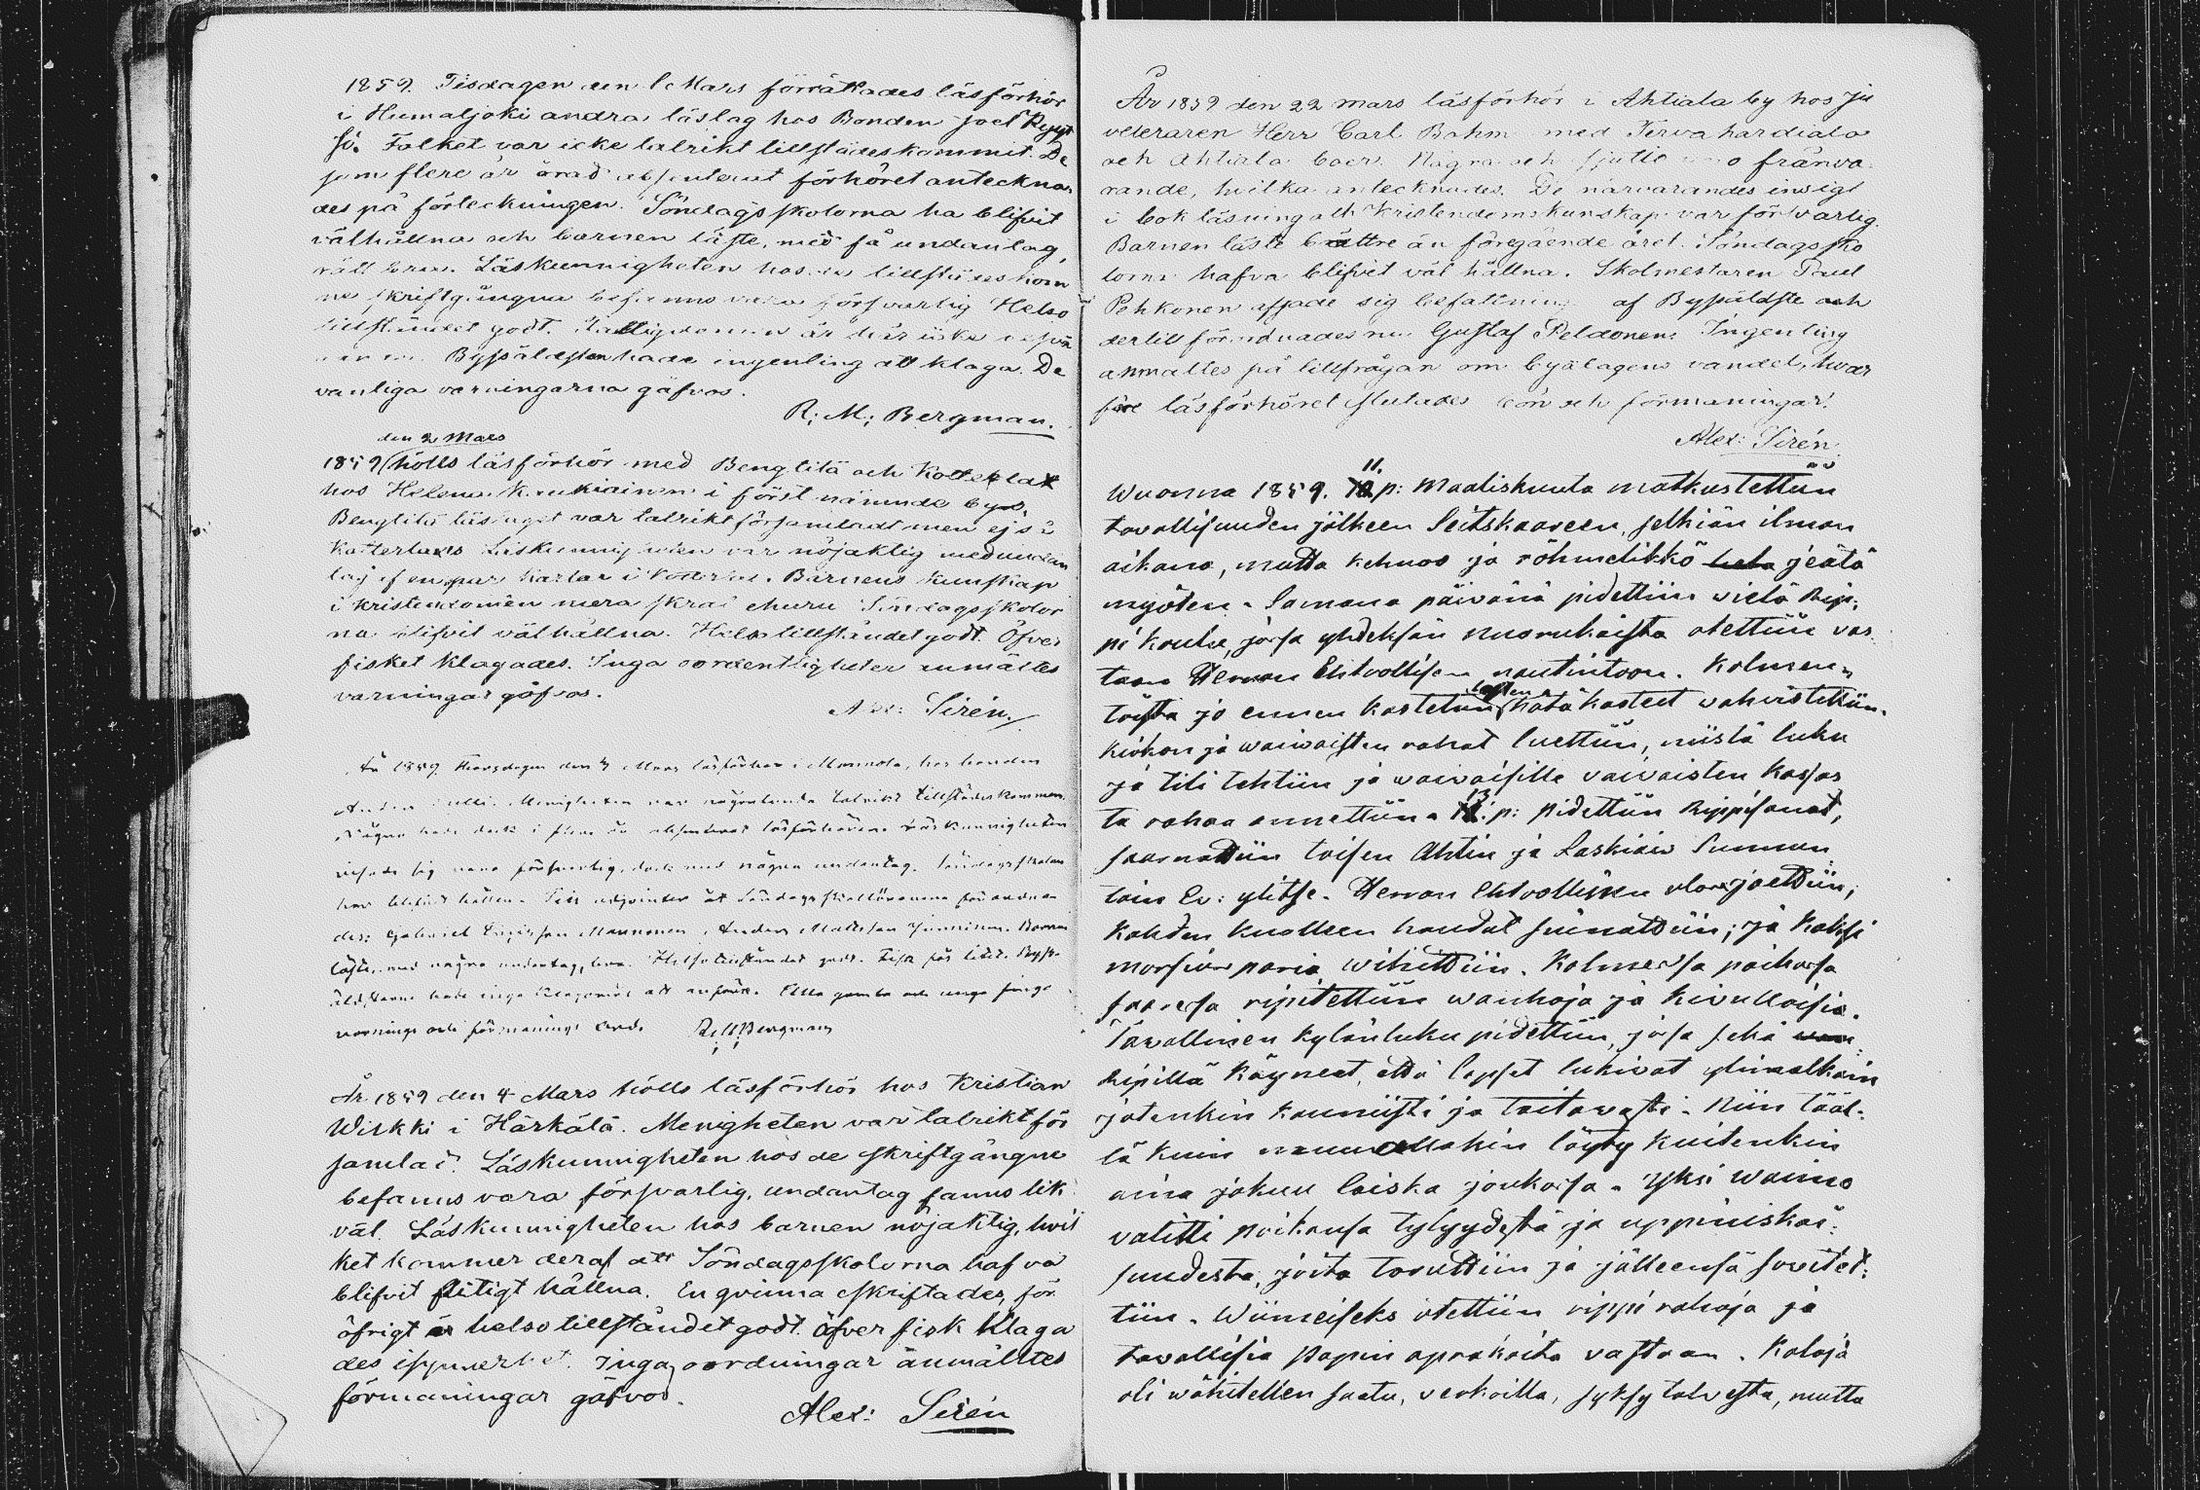 1859. Tisdagen den 1 Mars förrättades läsförhör
i Humaljoki andra läslag hos Bonden Joel
sö. Folket var icke talrikt tillstädeskommit. De
som flere år å rad absenterat förhöret anteckna
des på förteckningen. Söndagsskolorna ha blifvit
välhållna och barnen läste, med få undantag,
rätt bra. Läskunnigheten hos de tillstädeskom
ne skriftgångna befanns vara försvarlig Helso
tillståndet godt. är här icke
Bypäldsten hade ingenting att klaga. De
vanliga varningarna gåfvos.
R: M: Bergman.
den 2 Mars
1859 hölls läsförhör med Benglilä och Kotterlax
hos Helena Kaukiainen i först nämnde by.
Benglilä läslaget var talrikt församladt men ej så
Kotterlaxs Läskunnigheten var nöjaktig med undan
tag af en par karlar i Kotterlax. Barnens kunskap
i kristendomen mera skral ehuru Söndagsskolor
na blifvit välhållna. Helsotillståndet godt. Öfver
fisket klagades. Inga oordentligheter anmältes
varningar gåfvos.
Alex: Sirén.
År 1859 Thorsdagen den 3 Mars läsförhör i Mannola, hos bonden
Anders Menigheten var någorlunda talrikt tillstädeskommen.
Några hade dock i flere år absenterat läsförhören. Läskunnigheten
visade sig vara försvarlig, dock med några undantag. Söndagsskolan
har blifvit hållen. Till adjointer åt Söndagsskollärarena förordna
des: Gabriel Mannonen, Anders Mattsson Barnen
läste, med några undantag, bra. Helsotillståndet godt. Fisk fås litet. Byp-
äldstarne hade inga klagomål att anföra. Alla gamla och unga finge
varnings och förmanings ord. R: M: Bergman
År 1859 den 4 Mars hölls läsförhör hos Kristian
Wirkki i Härkälä. Menigheten var talrikt för
samlad. Läskunnigheten hos de skriftgångne
befanns vara försvarlig, undantag fanns lik
väl. Läskunnigheten hos barnen nöjaktig, hvil
ket kommer deraf att Söndagsskolorna hafva
blifvit flitigt hållna. En qvinna skriftades, för
öfrigt är helsotillståndet godt. Öfver fisk klaga
des Inga oordningar anmältes
förmaningar gåfvos.
Alex: Sirén
År 1859 den 22 mars läsförhör i Ahtiala by hos Ju
veleraren Herr Carl Bohm med Tervahardiala
och Ahtiala boer. Några och sjutio voro frånva
rande, hvilka antecknades. De närvarandes insigt
i bok läsning och Kristendomskunskap var försvarlig.
Barnen läste bättre än föregående året. Söndagssko
lorna hafva blifvit väl hållna. Skolmestaren Paul
Pehkonen afsade sig befattning af Bypäldste och
dertill förordnades nu Gustaf Peldonen. Ingenting
anmältes på tillfrågan om byalagens vandel, hvar
före läsförhöret slutades bön och förmaningar.
Alex: Sirén.
11.
Wuonna 1859. p: Maaliskuuta matkustettiin
tavallisuuden jälkeen Seitskaareen, selkiän ilman
aikana, mutta kehnoo ja röhmelikkö jeätä
myöten. Samana päivänä pidettiin vielä Rip-
pi koulu, josa yhdeksän nuorukaista otettiin vas
taan Herran Ehtoollisen nautintoon. Kolmen-
lasten
toista jo ennen kastetun hätäkasteet wahvistettiin.
Kirkon ja waivaisten rahat luettiin, niistä luku
ja tili tehtiin ja waivaisille vaivaisten kassas
13
ta rahaa annettiin. p: pidettiin Rippisanat,
saarnattiin toisen Ahtin ja Laskiais Sunnun
tain Ev: ylitse. Herran Ehtoollinen ulosjaettiin;
Kahden kuolleen haudat siunattiin; ja kaksi
morsian paria wihittiin. Kolmesa paikasa
saaresa ripitettiin wanhoja ja kivulloisia.
Tavallinen kylänluku pidettiin, josa sekä
Ripillä käyneet, että lapset lukivat ylimalkain
jotenkin kauniisti ja taitawasti. Niin tääl-
lä kuin muuallakin löyty kuitenkin
aina jokuu laiska joukosa. Yksi waimo
valitti poikansa tylyydestä ja uppiniskai-
suudesta, joita toruttiin ja jälleensä sovitet-
tiin. Wiimeiseks otettiin rippi rahoja ja
tavallisia papin aprakoita vastaan. Kaloja
oli wähitellen saatu, verkoilla, syksy talvesta, mutta